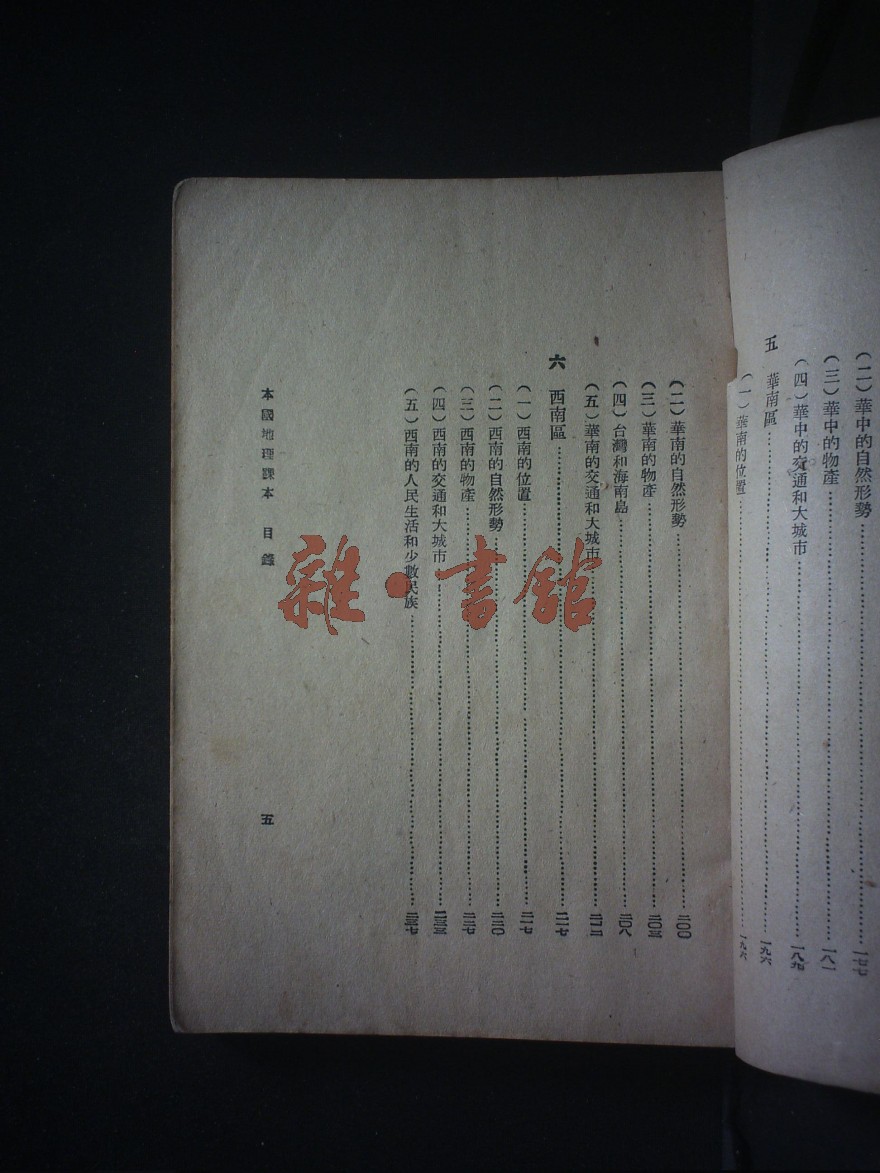 （二）華中的自然形勢……一七七
（三）華中的物產……一八一
（四）華中的交通和大城市……一八九
五　華南區……一九六
（一）華南的位置……一九六
（二）華南的自然形勢……二〇〇
（三）華南的物產……二〇三
（四）台灣和海南島……二〇八
（五）華南的交通和大城市……二一二
六　西南區……二一七
（一）西南的位置……二一七
（二）西南的自然形勢……二二〇
（三）西南的物產……二二七
（四）西南的交通和大城市……二三三
（五）西南的人民生活和少數民族……二三七
本國地理課本　目錄　五
雜·書館